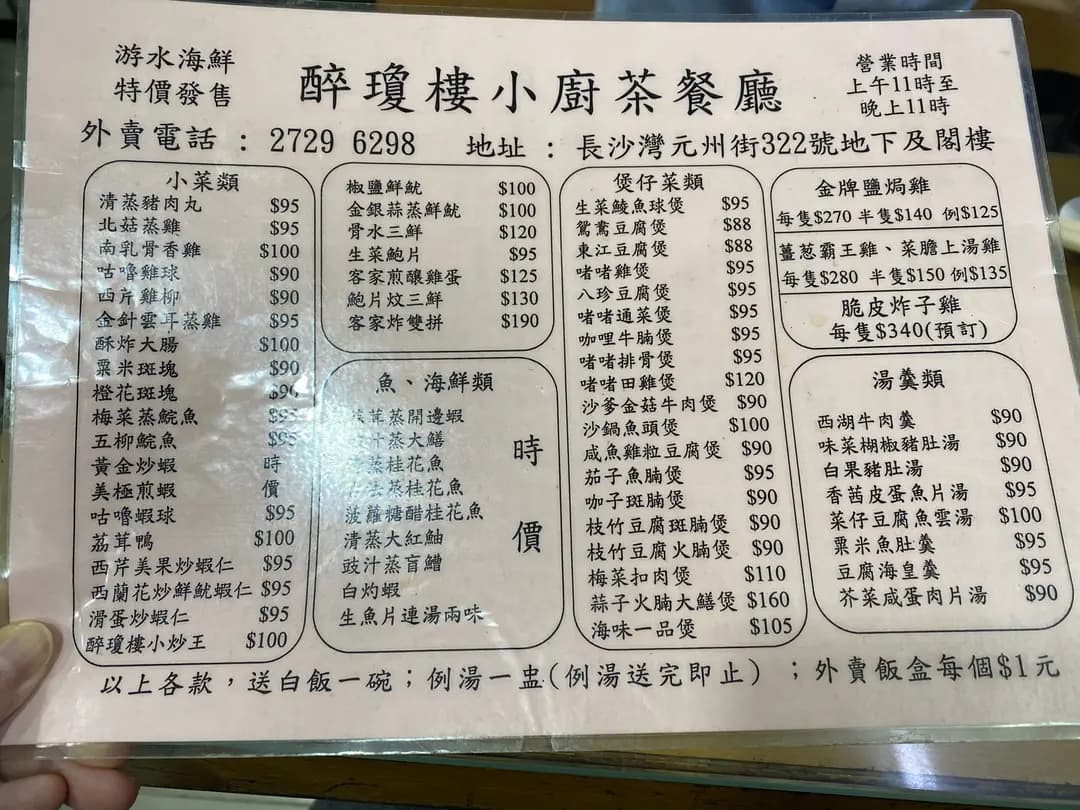 游水海鮮
特價發售
醉瓊樓小廚茶餐廳
營業時間
上午11時至
晚上11時
外賣電話 : 2729 6298 地址 : 長沙灣元州街322號地下及閣樓
小菜類
清蒸豬肉丸 $95
北菇蒸雞 $95
南乳骨香雞 $100
咕嚕雞球 $90
西芹雞柳 $90
金針雲耳蒸雞 $95
酥炸大腸 $100
粟米斑塊 $90
橙花斑塊 $90
梅菜蒸鯇魚 $95
五柳鯇魚 $95
黃金炒蝦 時
美極煎蝦 價
咕嚕蝦球 $95
荔茸鴨 $100
西芹美果炒蝦仁 $95
西蘭花炒鮮魷蝦仁 $95
滑蛋炒蝦仁 $95
醉瓊樓小炒王 $100
椒鹽鮮魷 $100
金銀蒜蒸鮮魷 $100
骨水三鮮 $120
生菜鮑片 $95
客家煎釀雞蛋 $125
鮑片炆三鮮 $130
客家炸雙拼 $190
魚、海鮮類
茸蒸開邊蝦
汁蒸大鱔
蒸桂花魚
蒸桂花魚
菠蘿糖醋桂花魚
清蒸大紅鮋
豉汁蒸盲鰽
白灼蝦
生魚片連湯兩味
時
價
煲仔菜類
生菜鯪魚球煲 $95
鴛鴦豆腐煲 $88
東江豆腐煲 $88
啫啫雞煲 $95
八珍豆腐煲 $95
啫啫通菜煲 $95
咖哩牛腩煲 $95
啫啫排骨煲 $95
啫啫田雞煲 $120
沙爹金菇牛肉煲 $90
沙鍋魚頭煲 $100
咸魚雞粒豆腐煲 $90
茄子魚腩煲 $95
咖子斑腩煲 $90
枝竹豆腐斑腩煲 $90
枝竹豆腐火腩煲 $90
梅菜扣肉煲 $110
蒜子火腩大鱔煲 $160
海味一品煲 $105
金牌鹽焗雞
每隻$270 半隻$140 例$125
薑葱霸王雞、菜膽上湯雞
每隻$280 半隻$150 例$135
脆皮炸子雞
每隻$340(預訂)
湯羹類
西湖牛肉羹 $90
味菜椒豬肚湯 $90
白果豬肚湯 $90
香茜皮蛋魚片湯 $95
菜仔豆腐魚雲湯 $100
粟米魚肚羹 $95
豆腐海皇羹 $95
芥菜咸蛋肉片湯 $90
以上各款，送白飯一碗；例湯一盅(例湯送完即止)；外賣飯盒每個$1元